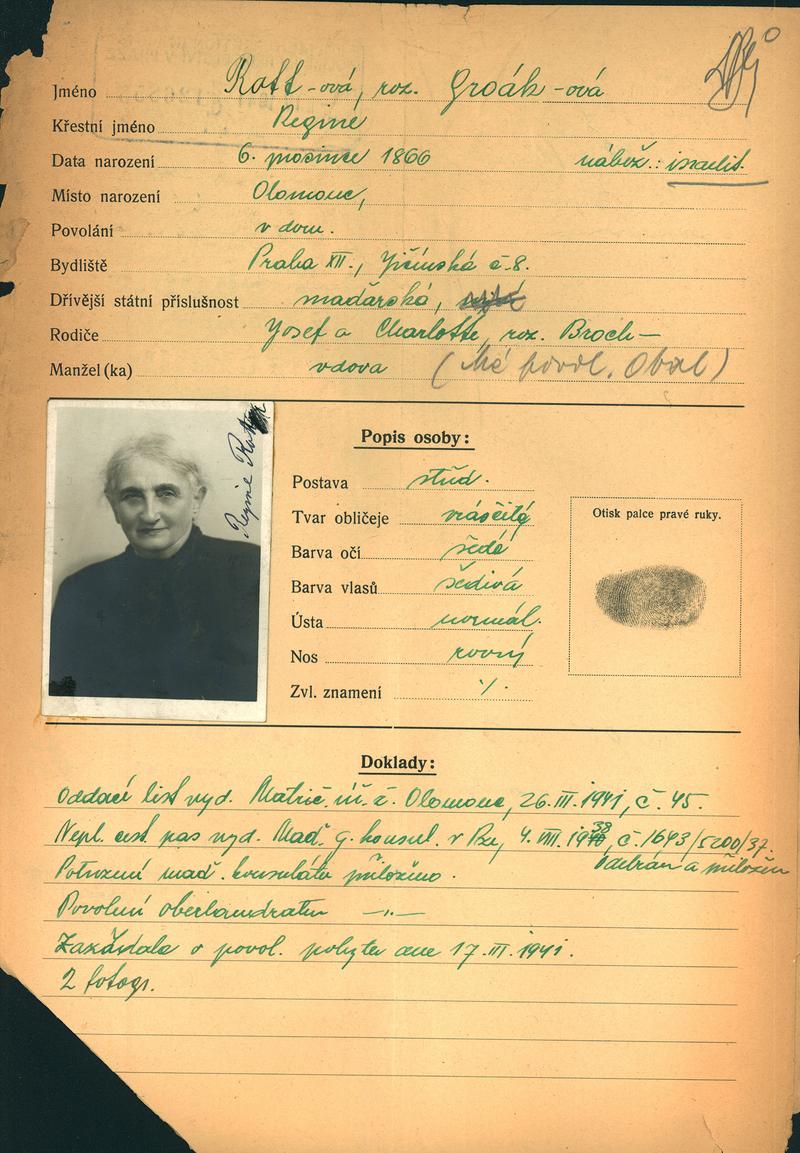 Jméno Rott-ová, roz. Groák-ová
Křestní jméno Regine
Data narození 6. prosince 1866 nábož.: israelit.
Místo narození Olomouc,
Povolání v dom.
Bydliště Praha XII., Jičínská č. 8.
Dřívější státní příslušnost maďarská,
Rodiče Josef a Charlotte, roz. Broch-
Manžel (ka) vdova (Má povol. Obal)
Regine Rott
Popis osoby:
Postava střed.
Tvar obličeje vrásčitý
Barva očí šedé
Barva vlasů šedivá
Ústa normál.
Nos rovný
Zvl. znamení ./.
Otisk palce pravé ruky.
Doklady:
Oddací list vyd. Matrič. úř. ž. Olomouc, 26. III. 1941, č. 45.
Nepl. cest. pas vyd. Maď. g. konsul. v Pze, 4. VIII. 1938, č. 1693/5200/37.
Odebrán a přiložen
Potvrzení maď. konsulátu přiloženo.
Povolení oberlandratu —„—
Zažádala o povol. pobytu dne 17. III. 1941.
2 fotogr.